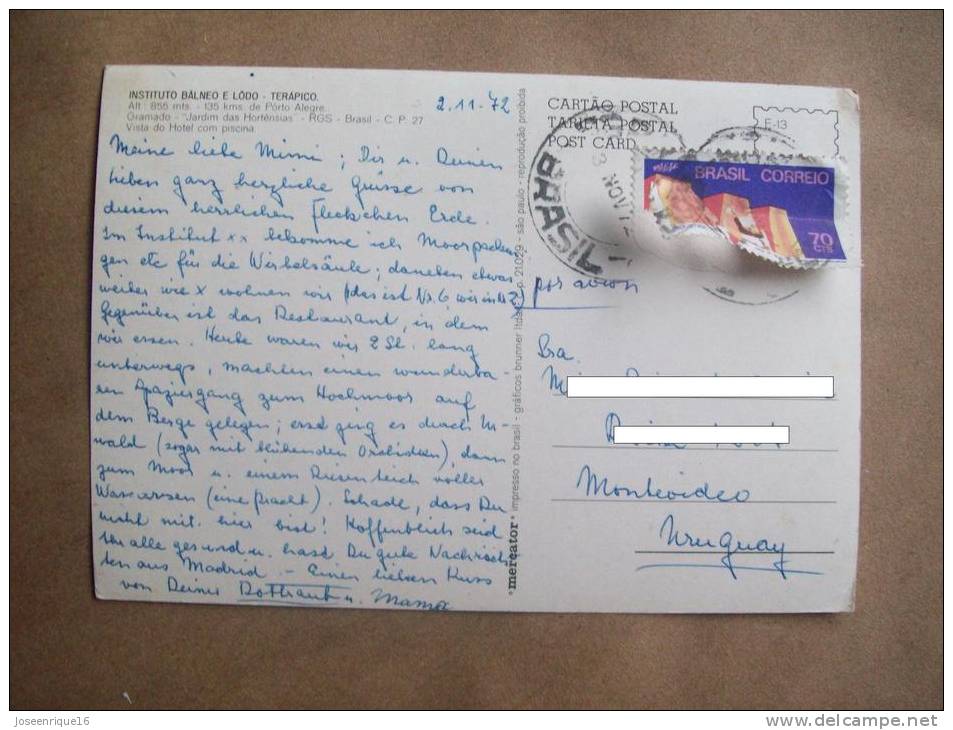 INSTITUTO BÁLNEO E LÔDO - TERÁPICO.
Alt: 855 mts. - 135 kms. de Pôrto Alegre.
Gramado - "Jardim das Hortênsias" - RGS - Brasil - C. P. 27
Vista do Hotel com piscina
2.11.72
Meine liebe Mimi; Dir u. Deinen
lieben ganz herzliche Grüsse von
diesem herrlichen Fleckchen Erde.
Im Institut xx bekomme ich Moorpackun
gen etc für die Wirbelsäule; daneben etwas
weiter wie x wohnen wir (das ist Nr. 6 wir in
Gegenüber ist das Restaurant, in dem
wir essen. Heute waren wir 2 St. lang
unterwegs, machten einen wunderba
ren Spaziergang zum Hochmoor auf
dem Berge gelegen; erst ging es durch
wald (sogar mit blühenden Orchideen), dann
zum Moor u. einem Riesenteich voller
Wasserrosen (eine Pracht). Schade, dass Du
nicht mit hier bist! Hoffentlich seid
Ihr alle gesund u. hast Du gute Nachrich
ten aus Madrid. - Einen lieben Kuss
von Deiner Rottraut u. Mama
*mercator* impresso no brasil - gráficos brunner ltda. c. p. 21.029 - são paulo - reprodução proibida
CARTÃO POSTAL
TARJETA POSTAL
POST CARD
E-13
BRASIL CORREIO
70
CTS
BRASIL
NOV 7
por avion
Sra.
Montevideo
Uruguay
Joseenrique16
www.delcampe.net